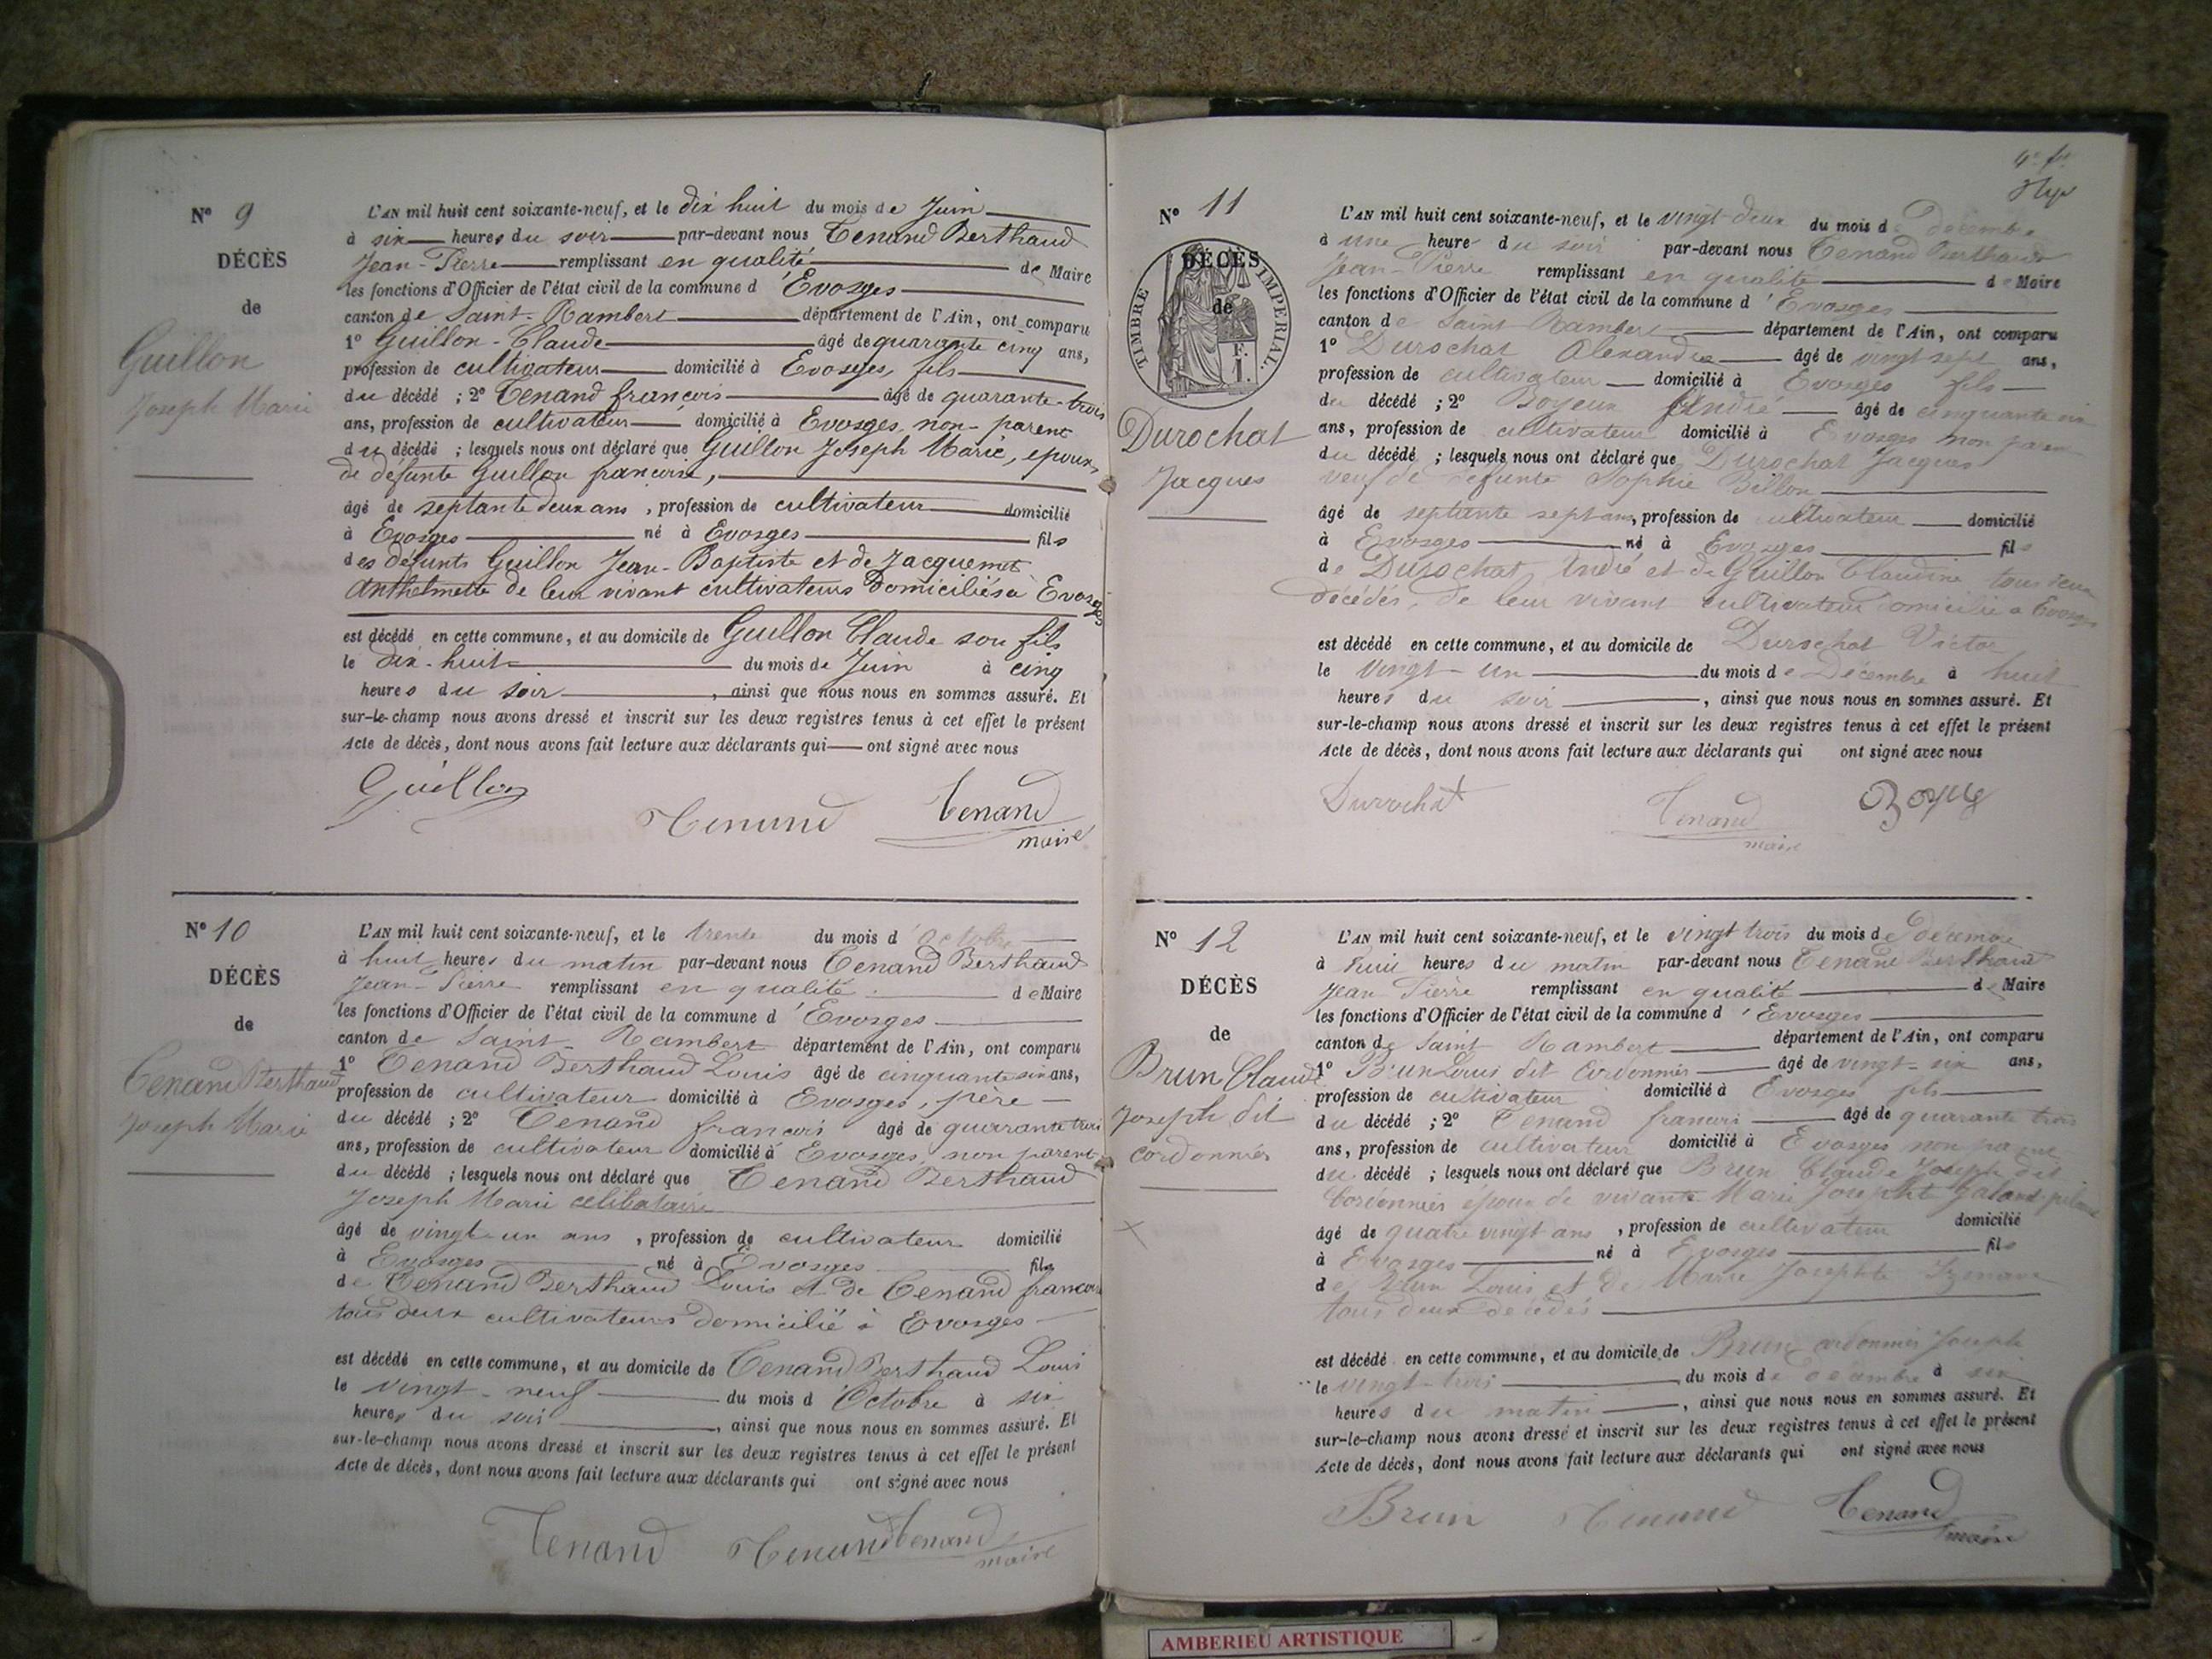 N° 9
DÉCÈS
de
Guillon
Joseph Marie
L'AN mil huit cent soixante-neuf, et le dix huit du mois de Juin
à six heures du soir par-devant nous Tenand Berthaud
Jean-Pierre remplissant en qualité de Maire
les fonctions d'Officier de l'état civil de la commune d'Evosges
canton de Saint-Rambert département de l'Ain, ont comparu
1° Guillon Claude âgé de quarante cinq ans,
profession de cultivateur domicilié à Evosges, fils
du décédé ; 2° Tenand françois âgé de quarante-trois
ans, profession de cultivateur domicilié à Evosges, non-parent
du décédé ; lesquels nous ont déclaré que Guillon Joseph Marie, epoux
de défunte Guillon francoise,
âgé de septante deux ans, profession de cultivateur domicilié
à Evosges né à Evosges fils
des défunts Guillon Jean-Baptiste et de Jacquemet
Anthelmette de leur vivant cultivateurs domiciliés à Evosges
est décédé en cette commune, et au domicile de Guillon Claude son fils
le dix-huit du mois de Juin à cinq
heures du soir, ainsi que nous nous en sommes assuré. Et
sur-le-champ nous avons dressé et inscrit sur les deux registres tenus à cet effet le présent
Acte de décès, dont nous avons fait lecture aux déclarants qui ont signé avec nous
Guillon
Tenand Tenand
maire
N° 10
DÉCÈS
de
Tenand Berthaud
Joseph Marie
L'AN mil huit cent soixante-neuf, et le trente du mois d'Octobre
à huit heures du matin par-devant nous Tenand Berthaud
Jean-Pierre remplissant en qualité de Maire
les fonctions d'Officier de l'état civil de la commune d'Evosges
canton de Saint-Rambert département de l'Ain, ont comparu
1° Tenand Berthaud Louis âgé de cinquante six ans,
profession de cultivateur domicilié à Evosges, père
du décédé ; 2° Tenand francois âgé de quarante trois
ans, profession de cultivateur domicilié à Evosges, non parent
du décédé ; lesquels nous ont déclaré que Tenand Berthaud
Joseph Marie celibataire
âgé de vingt-un ans, profession de cultivateur domicilié
à Evosges né à Evosges fils
de Tenand Berthaud Louis et de Tenand francoise
tous deux cultivateurs domicilié à Evosges
est décédé en cette commune, et au domicile de Tenand Berthaud Louis
le vingt-neuf du mois d'Octobre à six
heures du soir, ainsi que nous nous en sommes assuré. Et
sur-le-champ nous avons dressé et inscrit sur les deux registres tenus à cet effet le présent
Acte de décès, dont nous avons fait lecture aux déclarants qui ont signé avec nous
Tenand Tenand Tenand
maire
N° 11
DÉCÈS
de
TIMBRE IMPERIAL.
F.
1.
Durochat
Jacques
L'AN mil huit cent soixante-neuf, et le vingt-deux du mois de Décembre
à une heure du soir par-devant nous Tenand Berthaud
Jean-Pierre remplissant en qualité de Maire
les fonctions d'Officier de l'état civil de la commune d'Evosges
canton de Saint Rambert département de l'Ain, ont comparu
1° Durochat Alexandre âgé de vingt sept ans,
profession de cultivateur domicilié à Evosges fils
du décédé ; 2° Boyeux André âgé de cinquante six
ans, profession de cultivateur domicilié à Evosges non paren
du décédé ; lesquels nous ont déclaré que Durochat Jacques
veuf de defunte Sophie Billon
âgé de septante sept ans, profession de cultivateur domicilié
à Evosges né à Evosges fils
de Durochat André et de Guillon Claudine tous deux
décédés, de leur vivant cultivateur domicilié à Evosges
est décédé en cette commune, et au domicile de Durochat Victor
le vingt-un du mois de Décembre à huit
heures du soir, ainsi que nous nous en sommes assuré. Et
sur-le-champ nous avons dressé et inscrit sur les deux registres tenus à cet effet le présent
Acte de décès, dont nous avons fait lecture aux déclarants qui ont signé avec nous
Durrochat Tenand
maire
N° 12
DÉCÈS
de
Brun Claude
Joseph dit
cordonnier
L'AN mil huit cent soixante-neuf, et le vingt trois du mois de Décembre
à huit heures du matin par-devant nous Tenand Berthaud
Jean Pierre remplissant en qualité de Maire
les fonctions d'Officier de l'état civil de la commune d'Evosges
canton de Saint Rambert département de l'Ain, ont comparu
1° Brun Louis dit Cordonnier âgé de vingt-six ans,
profession de cultivateur domicilié à Evosges fils
du décédé ; 2° Tenand francois âgé de quarante trois
ans, profession de cultivateur domicilié à Evosges non
du décédé ; lesquels nous ont déclaré que Brun Claude Joseph dit
Cordonnier époux de vivante Marie Josephte
âgé de quatre vingt ans, profession de cultivateur domicilié
à Evosges né à Evosges fils
de Brun Louis et de Marie Josephte
tous deux décédés
est décédé en cette commune, et au domicile de Brun cordonnier Joseph
le vingt-trois du mois de Décembre à six
heures du matin, ainsi que nous nous en sommes assuré. Et
sur-le-champ nous avons dressé et inscrit sur les deux registres tenus à cet effet le présent
Acte de décès, dont nous avons fait lecture aux déclarants qui ont signé avec nous
Brun Tenand Tenand
maire
AMBERIEU ARTISTIQUE